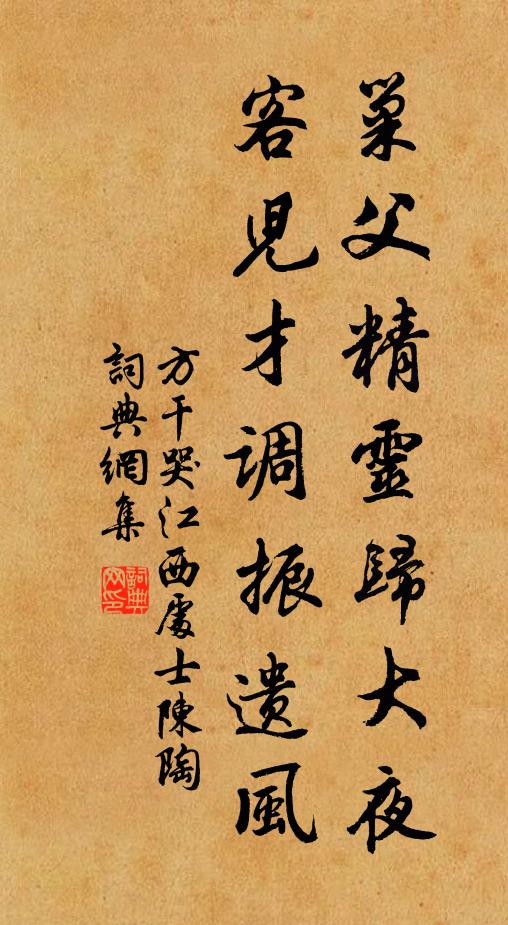 巢父精靈歸大夜
客兒才調振遺風
方干哭江西處士陳陶
詞典網集
詞典网印